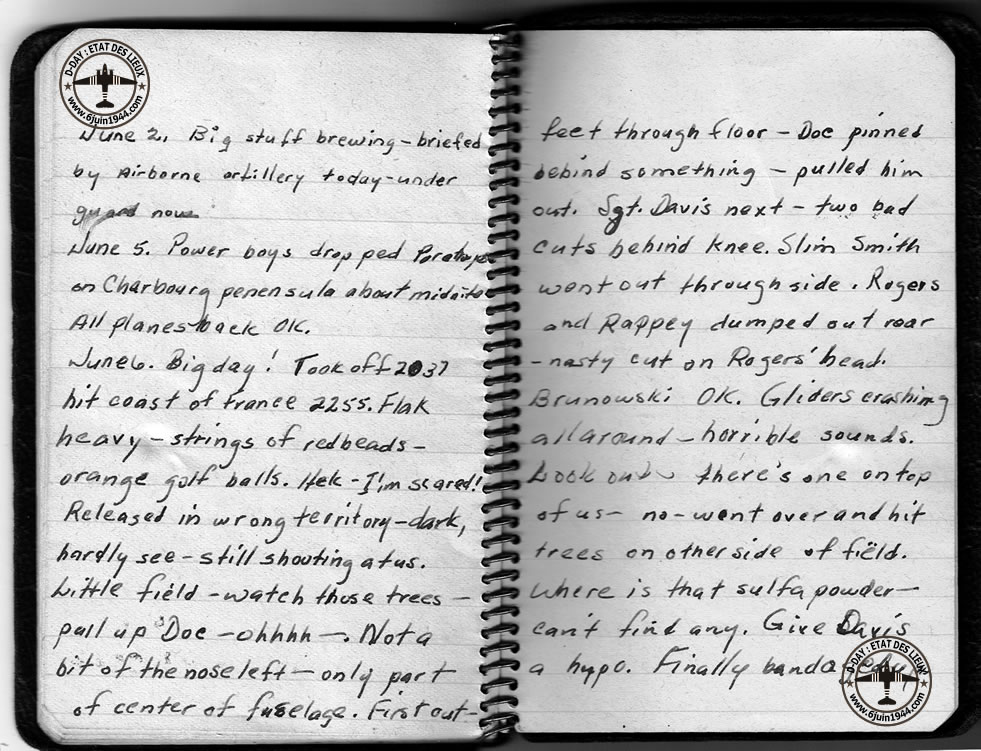 D-DAY : ETAT DES LIEUX
www.6juin1944.com
June 2. Big stuff brewing - briefed
by Airborne artillery today - under
guard now
June 5. Power boys dropped
on Charbourg penensula about
All planes back OK.
June 6. Big day! Took off 2037
hit coast of france 2255. Flak
heavy - strings of red beads -
orange golf balls. Hek - I'm scared!
Released in wrong territory - dark,
hardly see - still shouting at us.
Little field - watch those trees -
pull up Doc - ohhhh -. Not a
bit of the nose left - only part
of center of fuselage. First out -
feet through floor - Doc pinned
behind something - pulled him
out. Sgt. Davis next - two bad
cuts behind knee. Slim Smith
went out through side. Rogers
and Rappey dumped out rear
- nasty cut on Rogers' head.
Brunowski OK. Gliders crashing
all around - horrible sounds.
Look out there's one on top
of us - no - went over and hit
trees on other side of field.
Where is that sulfa powder -
can't find any. Give Davis
a hypo. Finally
D-DAY : ETAT DES LIEUX
www.6juin1944.com